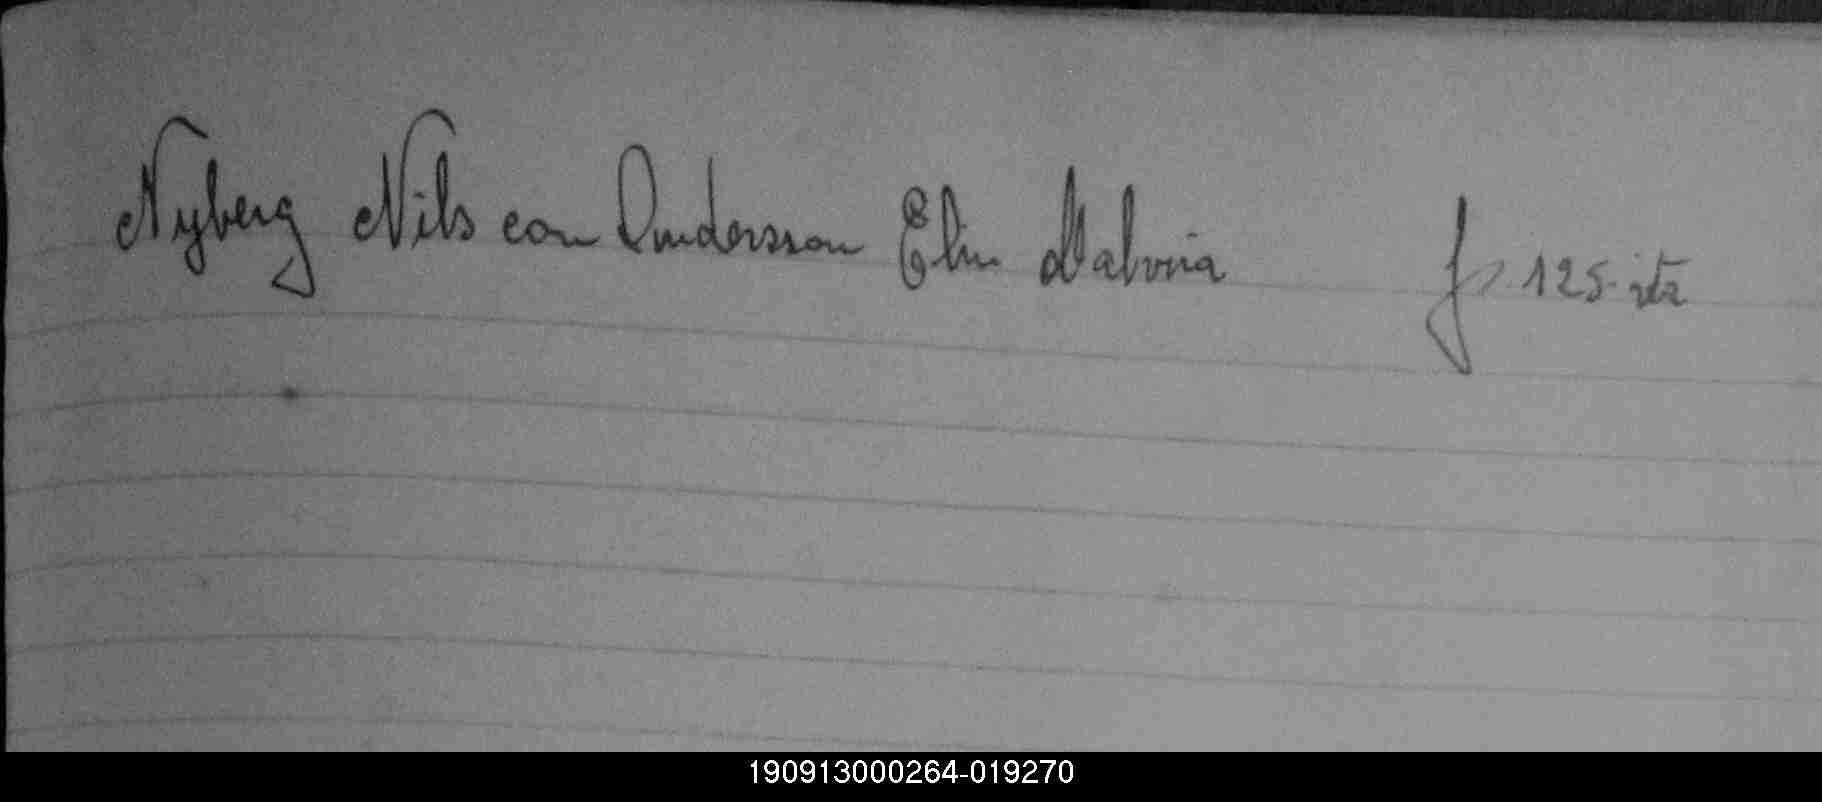 Nyberg Nils con Andersson Elin Malvina f 125 vta
190913000264-019270